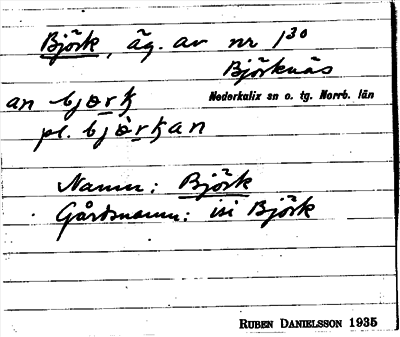 Björk, äg. av nr 1³⁰
Björknäs
Nederkalix sn o. tg. Norrb. län
an bjørk
pl. bjørkan
Namn: Björk
Gårdsnamn: isi Björk
RUBEN DANIELSSON 1935